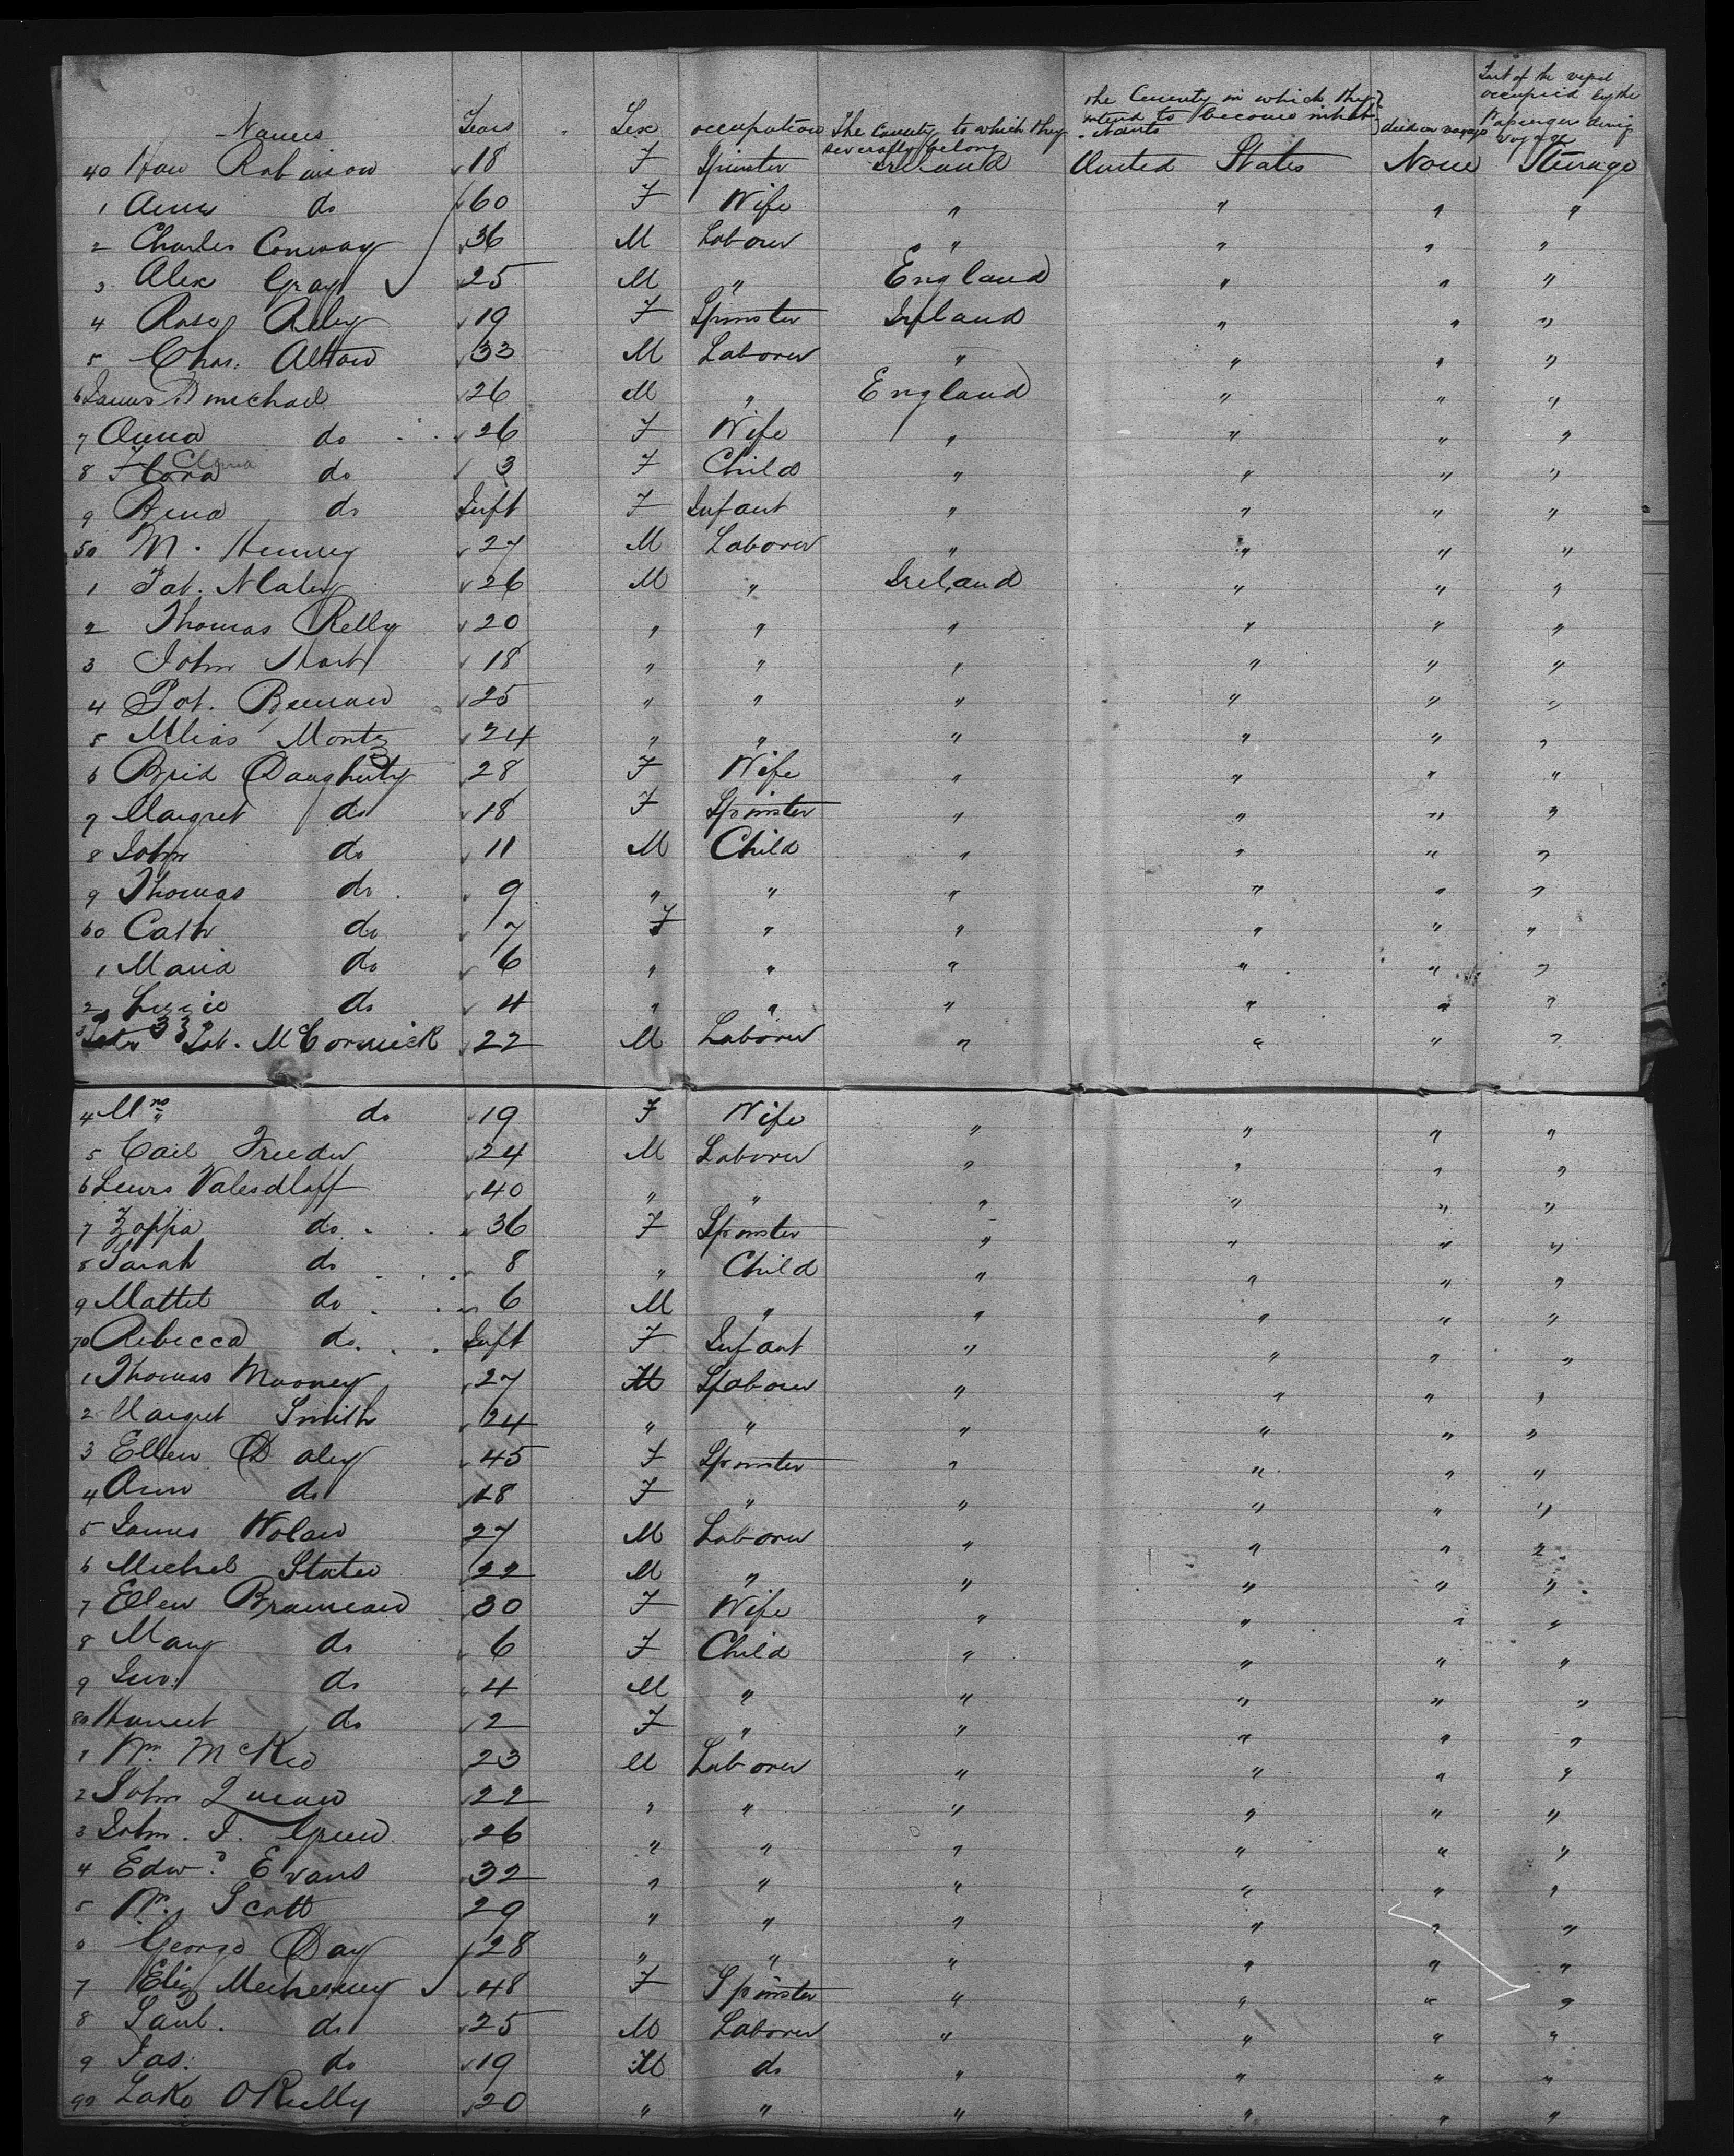 Names Years Sex occupation The County to which they severally belong the County in which they intend to become inhabitants died on voyage Part of the vessel occupied by the Passengers during voyage
40 Robinson 18 F Spinster Ireland United States None Steerage
1 Ann do 60 F Wife " " " "
2 Charles Conway 36 M Laborer " " " "
3 Alex Gray 25 M " England " " "
4 Rose Riley 19 F Spinster Ireland " " "
5 Chas. Altow 33 M Laborer " " " "
6 James michael 26 M " England " " "
7 Anna do 26 F Wife " " " "
8 Flora Clara do 3 F Child " " " "
9 Rena do Inft F Infant " " " "
50 M. Henney 27 M Laborer " " " "
1 Pat. 26 M " Ireland " " "
2 Thomas Relly 20 " " " " " "
3 John 18 " " " " " "
4 Pat. Brenan 25 " " " " " "
5 Montz 24 " " " " " "
6 Brid Daugherty 28 F Wife " " " "
7 Margret do 18 F Spinster " " " "
8 John do 11 M Child " " " "
9 Thomas do 9 " " " " " "
60 Cath do 7 F " " " " "
1 Maria do 6 " " " " " "
2 Lizzie do 4 " " " " " "
3 Pat. McCormick 22 M Laborer " " " "
4 Mrs do 19 F Wife " " " "
5 Carl Freeder 24 M Laborer " " " "
6 Lewis Valesdloff 40 " " " " " "
7 Zoppa do 36 F Spinster " " " "
8 Sarah do 8 " Child " " " "
9 Mattet do 6 M " " " " "
70 Rebecca do Inft F Infant " " " "
1 Thomas Mooney 27 M Labourer " " " "
2 Margret Smith 24 " " " " " "
3 Ellen Daley 45 F Spinster " " " "
4 Ann do 18 F " " " " "
5 James Nolan 27 M Laborer " " " "
6 Michel Slater 22 M " " " " "
7 Ellen Brannean 30 F Wife " " " "
8 Mary do 6 F Child " " " "
9 Jno. do 4 M " " " " "
80 Harriet do 2 F " " " " "
1 Wm. McKeo 23 M Laborer " " " "
2 John Quinn 22 " " " " " "
3 John. J. Green 26 " " " " " "
4 Edwd. Evans 32 " " " " " "
5 Wm. Scott 29 " " " " " "
6 George Day 28 " " " " " "
7 Eliz 48 F Spinster " " " "
8 Paul. do 25 M Laborer " " " "
9 Jas. do 19 M do " " " "
90 Lake OReilly 20 " " " " " "